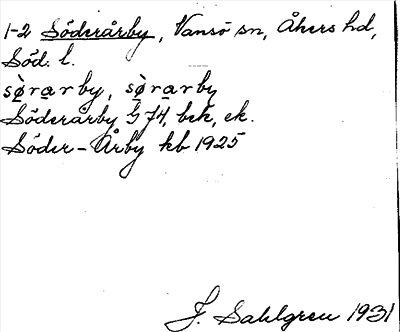 1-2 Söderårby, Vansö sn, Åkers hd,
Söd. l.
sø̀rarby, sø̀rarby
Söderårby G 74, bek, ek.
Söder-Årby kb 1925
J. Sahlgren 1931